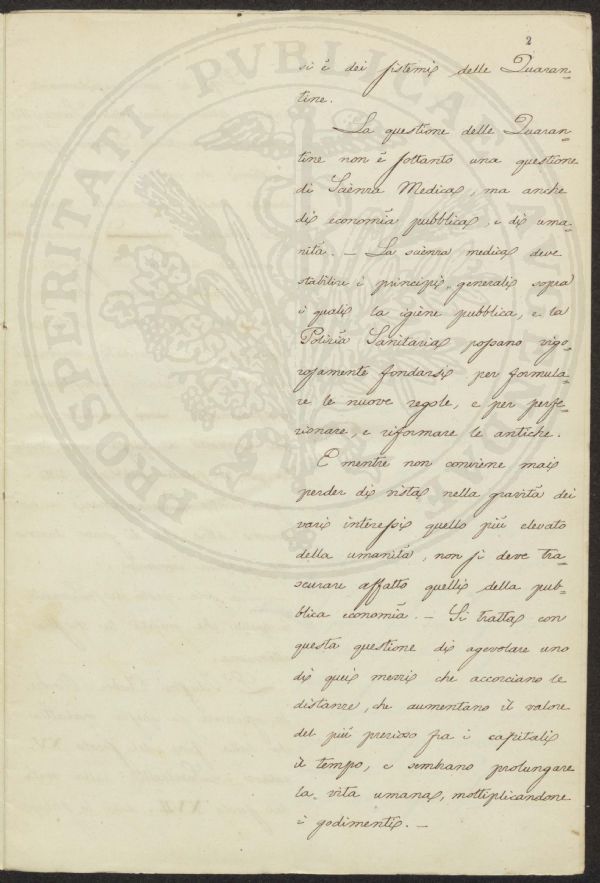 2
si è dei sistemi delle Quaran-
tine.
La questione delle Quaran-
tine non è soltanto una questione
di Scienza Medica, ma anche
di economia pubblica, e di uma-
nità. — La scienza medica deve
stabilire i principii generali sopra
i quali la igiene pubblica, e la
Polizia Sanitaria possano vigo-
rosamente fondarsi per formula-
re le nuove regole, e per perfe-
zionare, e riformare le antiche.
E mentre non conviene mai
perder di vista nella gravità dei
varii interessi quello più elevato
della umanità, non si deve tra-
scurare affatto quelli della pub-
blica economia. — Si tratta con
questa questione di agevolare uno
di quei mezzi che accorciano le
distanze, che aumentano il valore
del più prezioso fra i capitali
il tempo, e sembrano prolungare
la vita umana, moltiplicandone
i godimenti. —
PROSPERITATI PVBLICAE